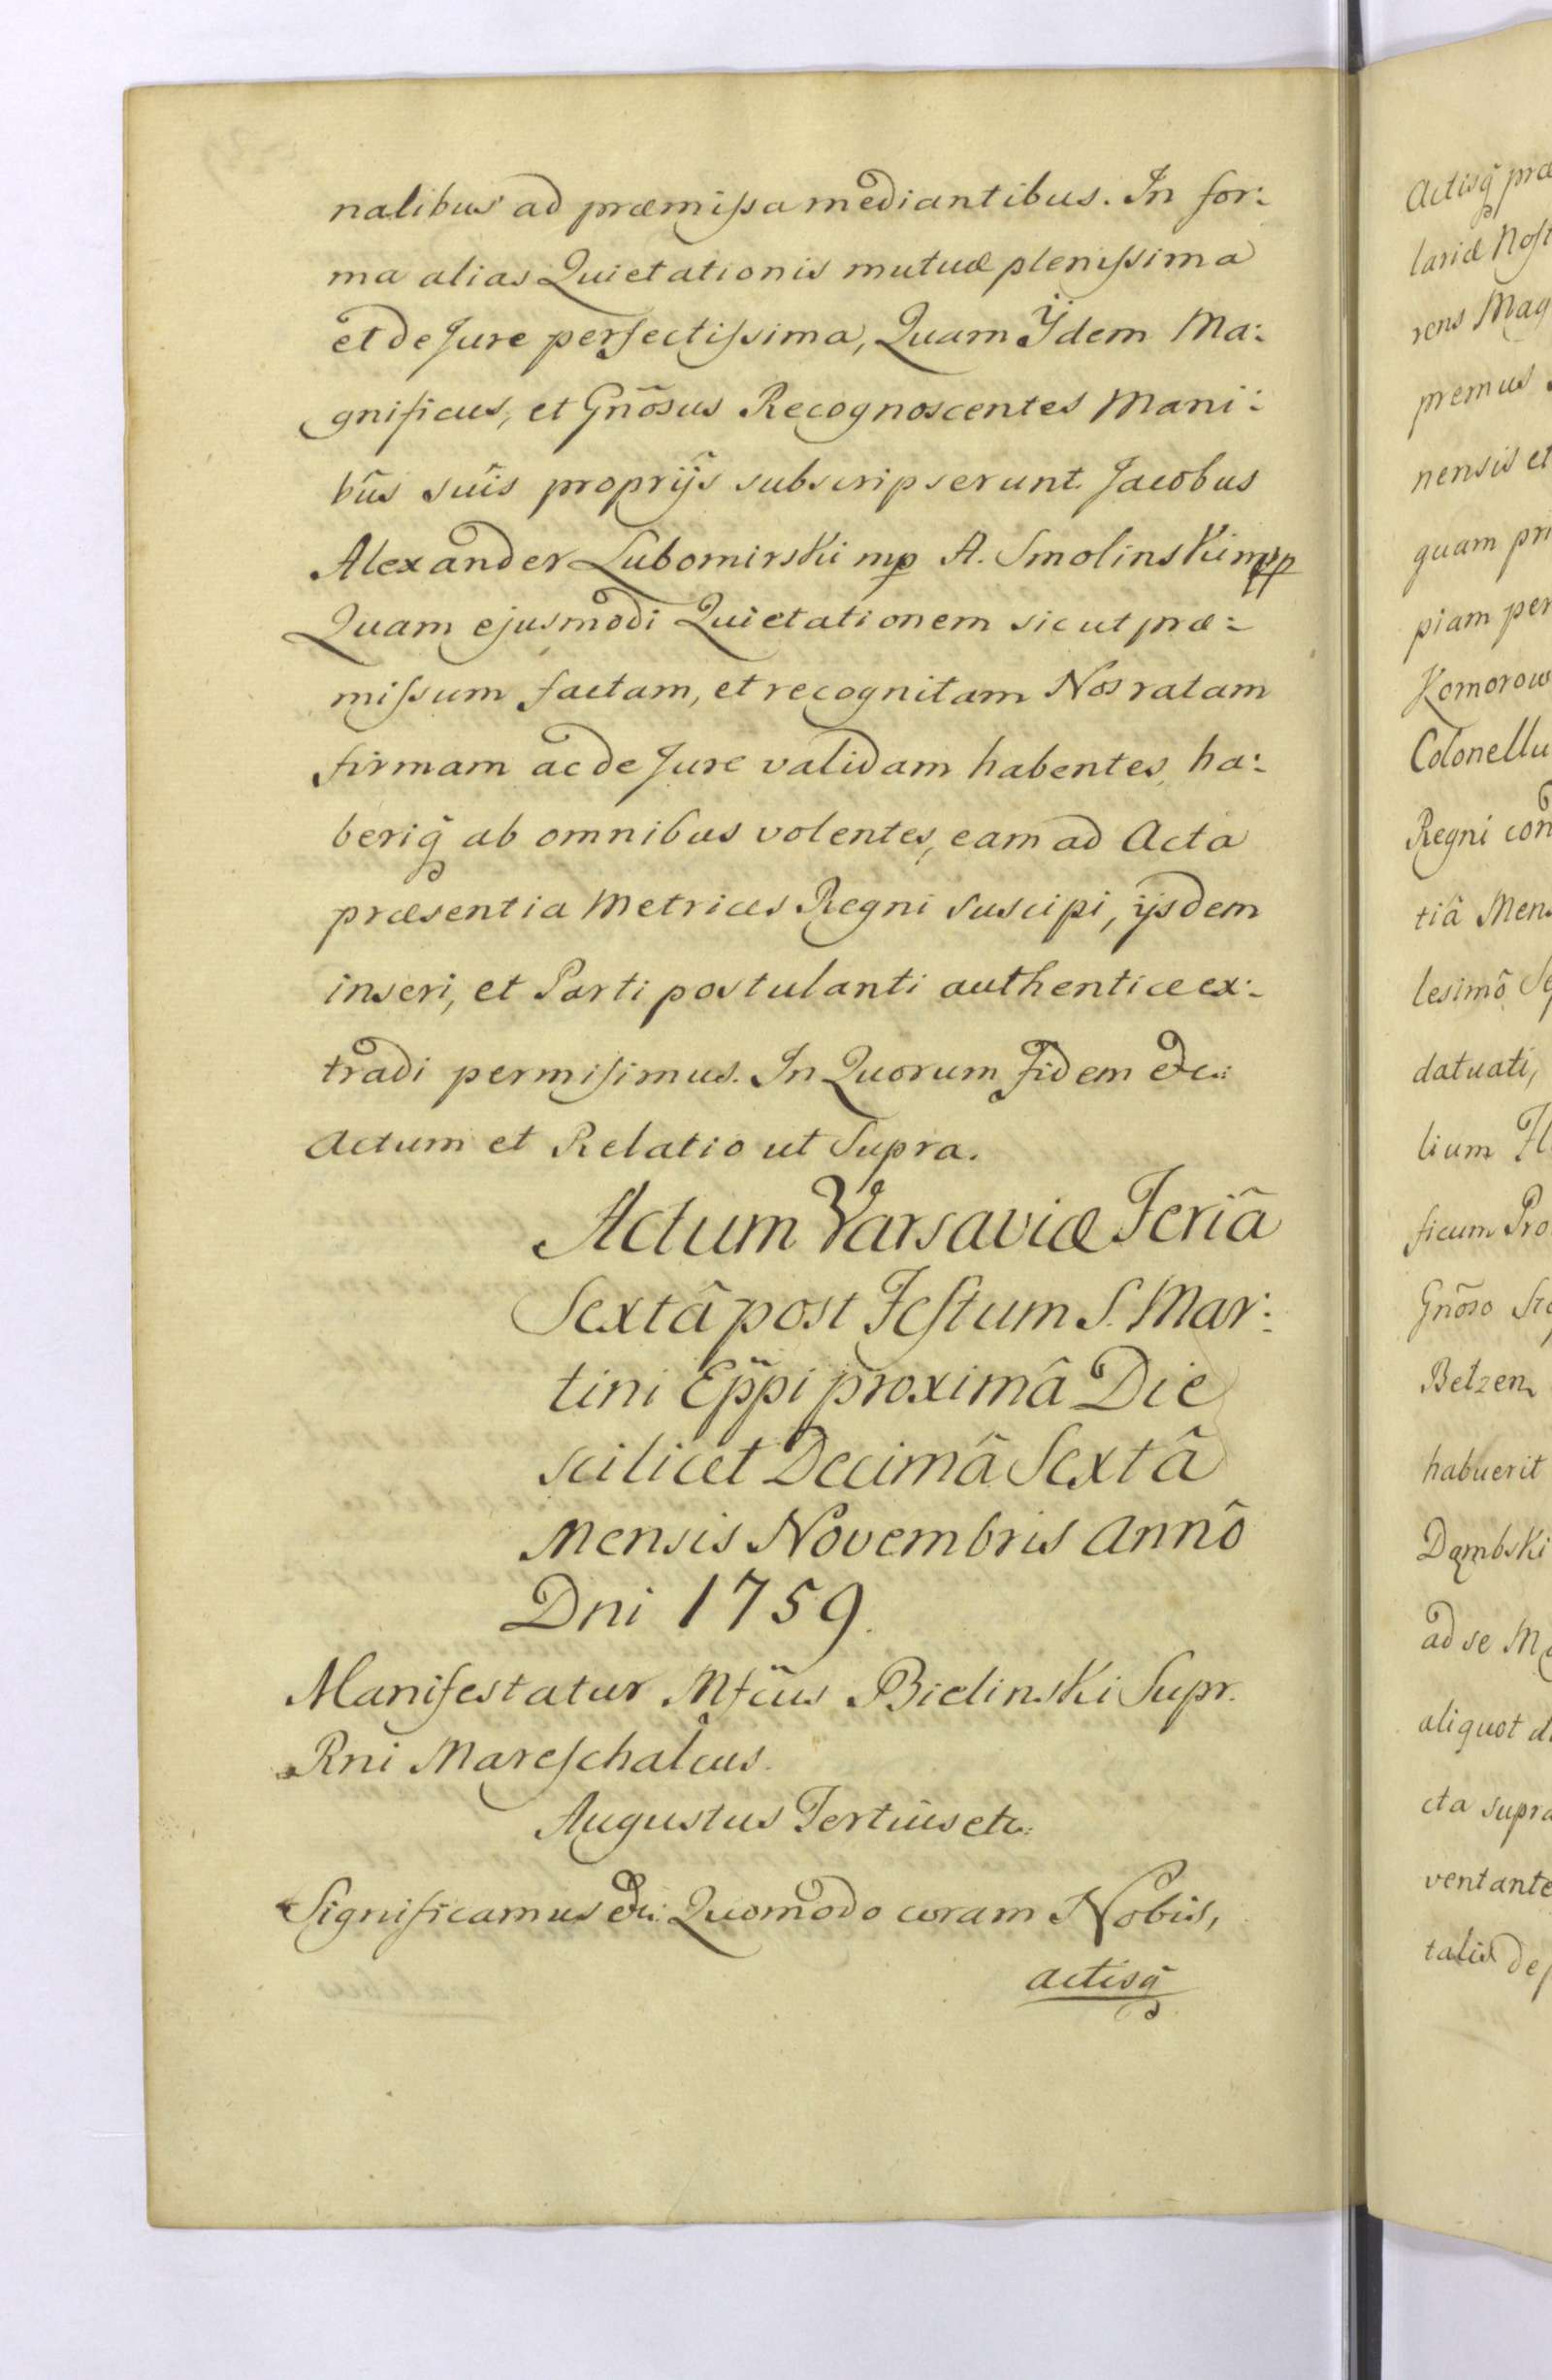 nalibus ad præmissa mediantibus. In for:
ma alias Quietationis mutuæ plenissima
et de Jure perfectissima, Quam Ÿdem Ma:
gnificus, et Gnõsus Recognoscentes Mani:
bûs suîs proprijs subscripserunt. Jacobus
Alexander Lubomirski mp A. Smolinski mpp
Quam ejusmodi Quietationem sic ut præ:
missum factam, et recognitam Nos ratam
firmam ac de Jure validam habentes, ha:
beriq̃ ab omnibus volentes, eam ad Acta
præsentia Metrices Regni suscipi, ijsdem
inseri, et Parti postulanti authentice ex:
tradi permisimus. In Quorum Fidem etc:
Actum et Relatio ut Supra.
Actum Varsaviæ Feriâ
Sextâ post Festum S. Mar:
tini Ep̃pi proximâ Die
scilicet Decimâ Sextâ
Mensis Novembris Annô
Dni 1759.
Manifestatur Mfcus Bielinski Supr.
Rni Mareschalcus.
Augustus Tertius etc:
Significamus etc: Quomodo coram Nobis,
actisq̃
Actisq̃ præ
lariæ Nost
rens Mag
premus
nensis et
quam pri
piam per
Komorow
Colonellu
Regni con
tiâ Mens
lesimô Se
datuati,
lium Fl
ficum Pro
Gnõso Sto
Betzen
habuerit
Dąmbski
ad se Ma
aliquot d
cta supra
ventante
talis de